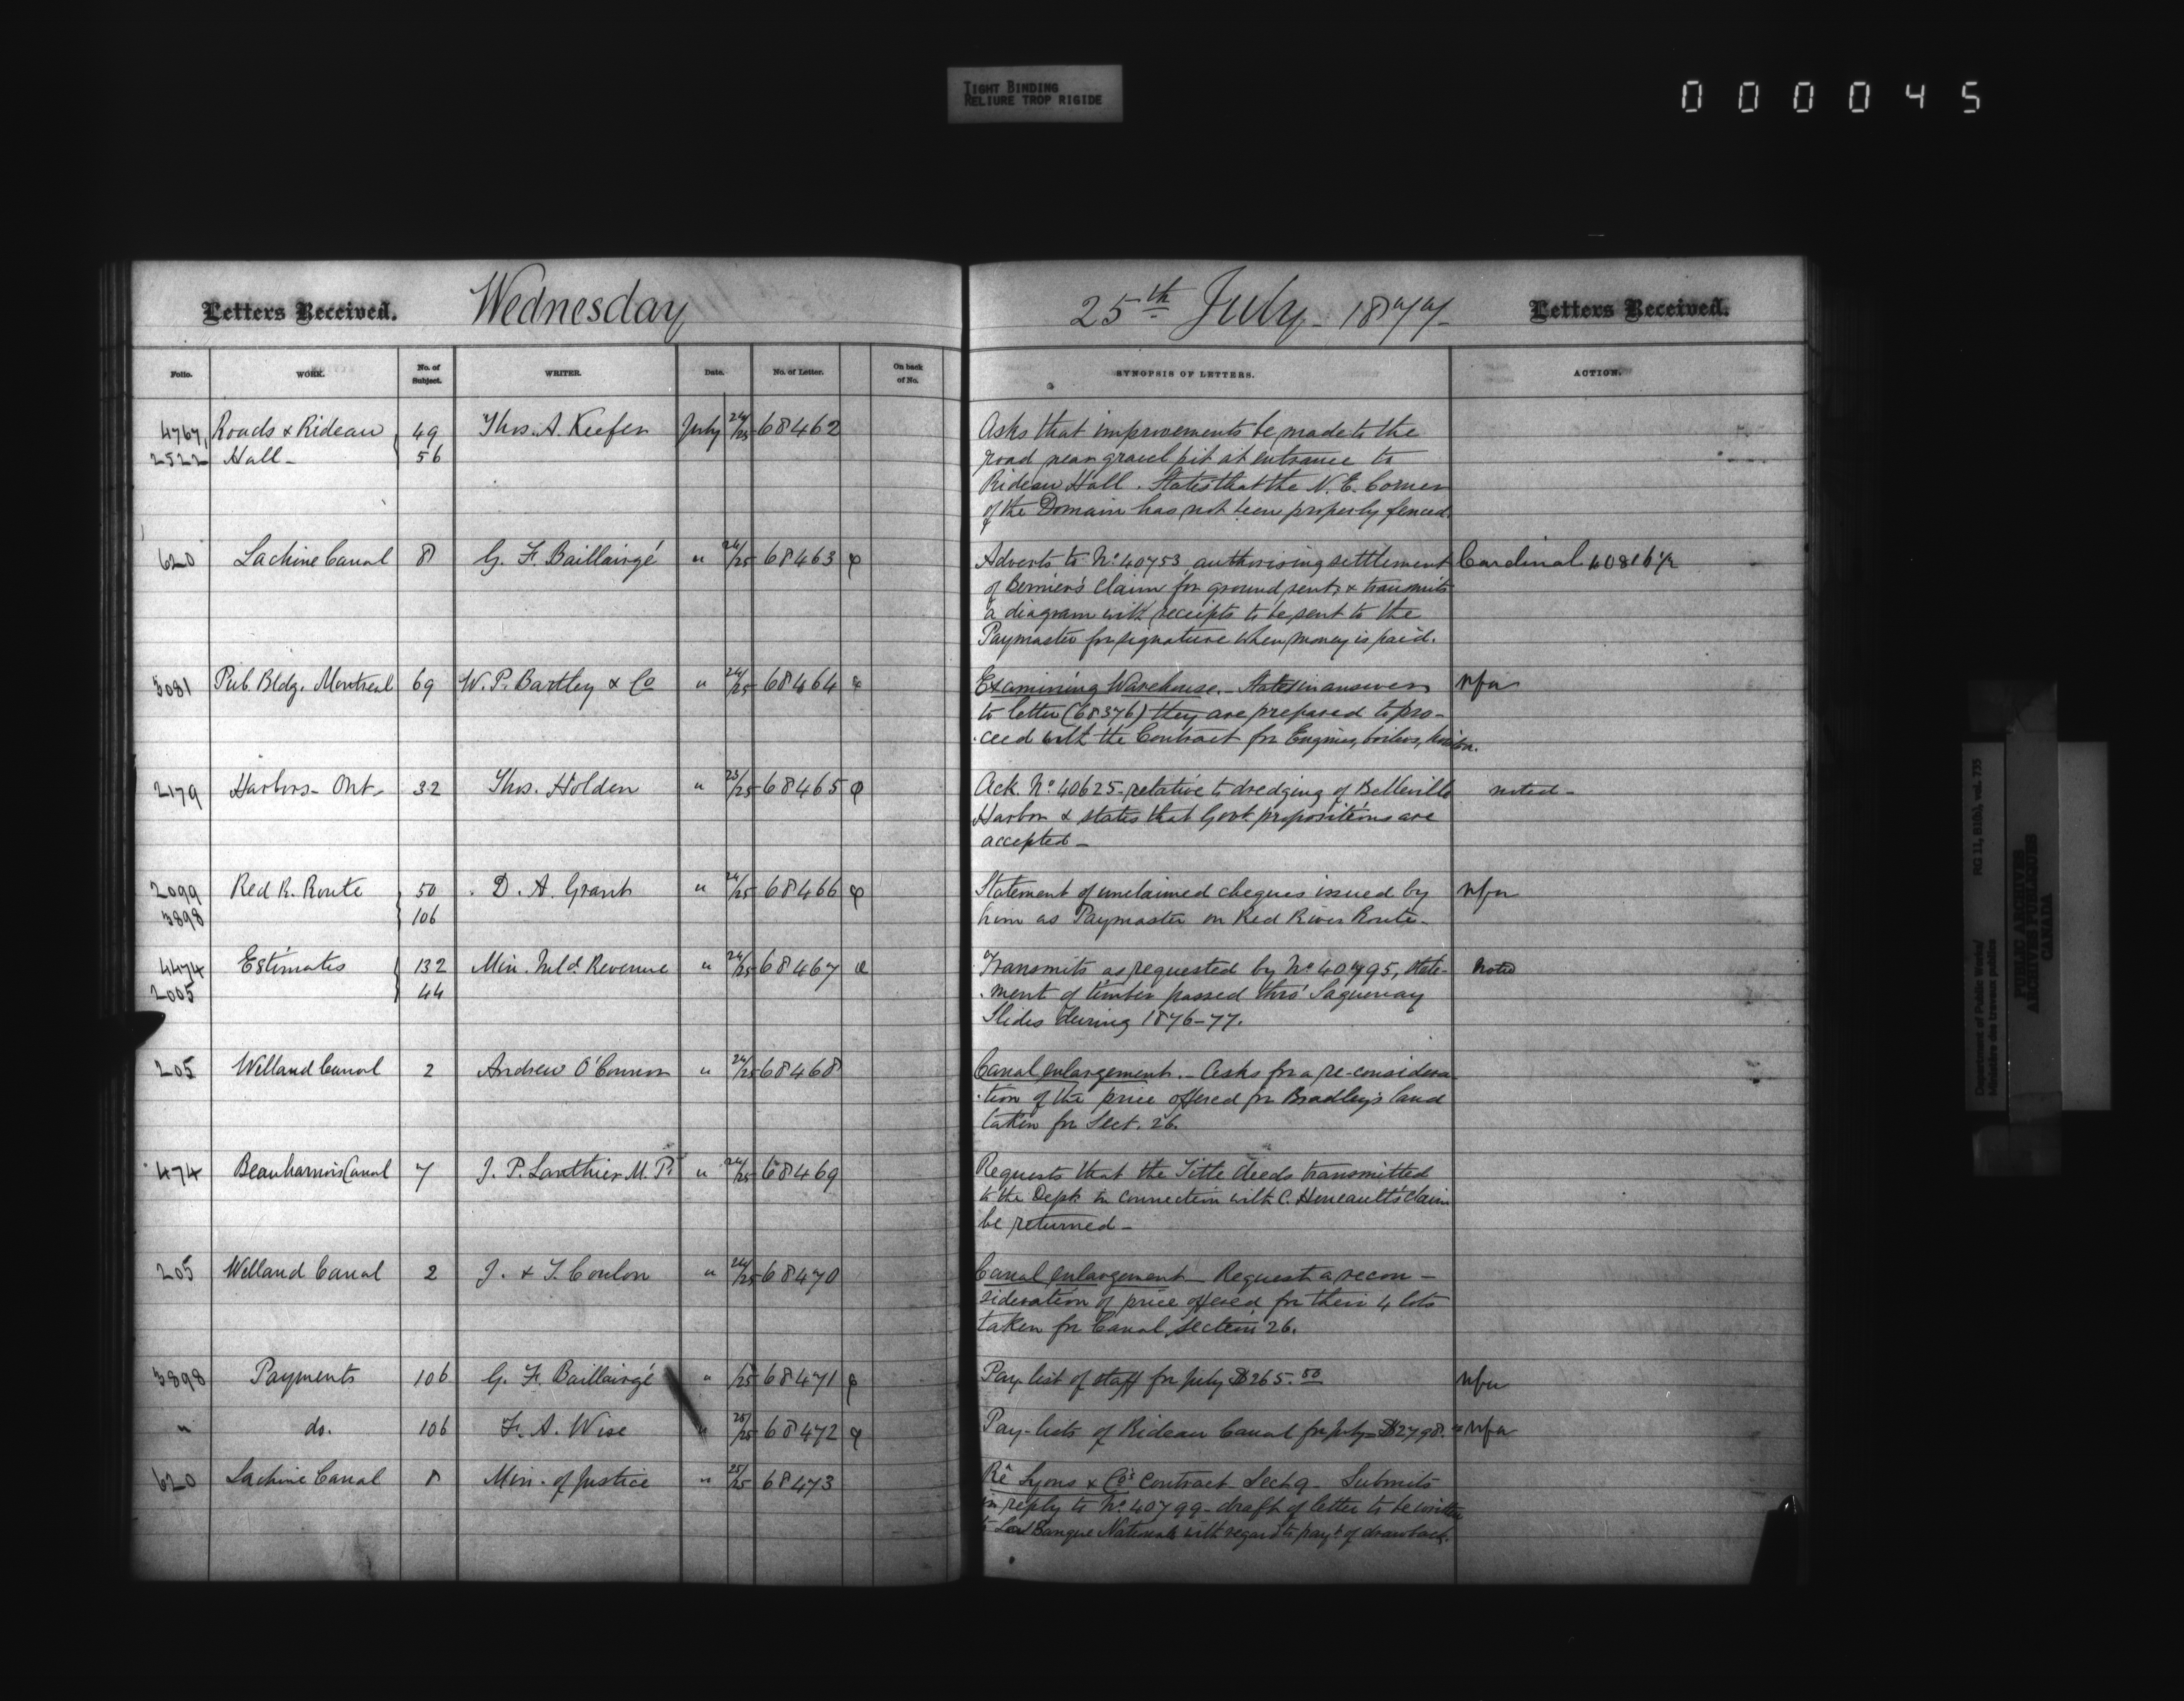 TIGHT BINDING
RELIURE TROP RIGIDE
000045
Letters Received. Wednesday 25th July 1877 Letters Received.
Folio. WORK. No. of Subject. WRITER. Date. No. of Letter. On back of No. SYNOPSIS OF LETTERS. ACTION.
4767, Roads & Rideau 49 Thos. A. Keefer July 24/25 68462 Asks that improvements be made to the
2522 Hall 56 road near gravel pit at entrance to
Rideau Hall. States that the N.E. Corner
of the Domain has not been properly fenced.
620 Lachine Canal 8 G. F. Baillairgé " 24/25 68463 Adverts to No. 40753, authorising settlement Cardinal 40816 1/2
of Bernier's Claim for ground rent, & transmits
a diagram with receipts to be sent to the
Paymaster for signature when money is paid.
3081 Pub. Bldg. Montreal 69 W. P. Bartley & Co " 24/25 68464 Examining Warehouse. - States in answer nfa
to letter (68376) they are prepared to pro-
ceed with the Contract for Engines, boilers,
2179 Harbors - Ont. 32 Thos. Holden " 23/25 68465 Ack. No. 40625 - relative to dredging of Belleville noted -
Harbor & states that Govt propositions are
accepted -
2099 Red R. Route 50 D. A. Grant " 24/25 68466 Statement of unclaimed cheques issued by nfa
3898 106 him as Paymaster on Red River Route -
4474 Estimates 132 Min. Inld. Revenue " 24/25 68467 Transmits as requested by No. 40795, state- Noted
2005 44 ment of timber passed thro' Saguenay
Slides during 1876-77.
205 Welland Canal 2 Andrew O'Connor " 24/25 68468 Canal enlargement. - Asks for a re-considera
tion of the price offered for Bradley's land
taken for Sect. 26.
474 Beauharnois Canal 7 J. P. Lanthier M.P. " 24/25 68469 Requests that the Title deeds transmitted
to the Dept in connection with C. Heneault's claim
be returned -
205 Welland Canal 2 J. & T. Conlon " 24/25 68470 Canal enlargement - Request a recon -
sideration of price offered for their 4 lots
taken for Canal section 26.
3898 Payments 106 G. F. Baillairgé " /25 68471 Pay list of staff for July $265.50 nfa
" do. 106 F. A. Wise " 25/25 68472 Pay-lists of Rideau Canal for July $2798. nfa
620 Lachine Canal 8 Min. of Justice " 25/25 68473 Re Lyons & Co's contract Sect 9 - Submits
in reply to No. 40799 - draft of letter to be written
to La Banque Nationale with regard to payt of drawback.
Department of Public Works/
Ministère des travaux publics
RG 11, B1(b), vol. 735
PUBLIC ARCHIVES
ARCHIVES PUBLIQUES
CANADA